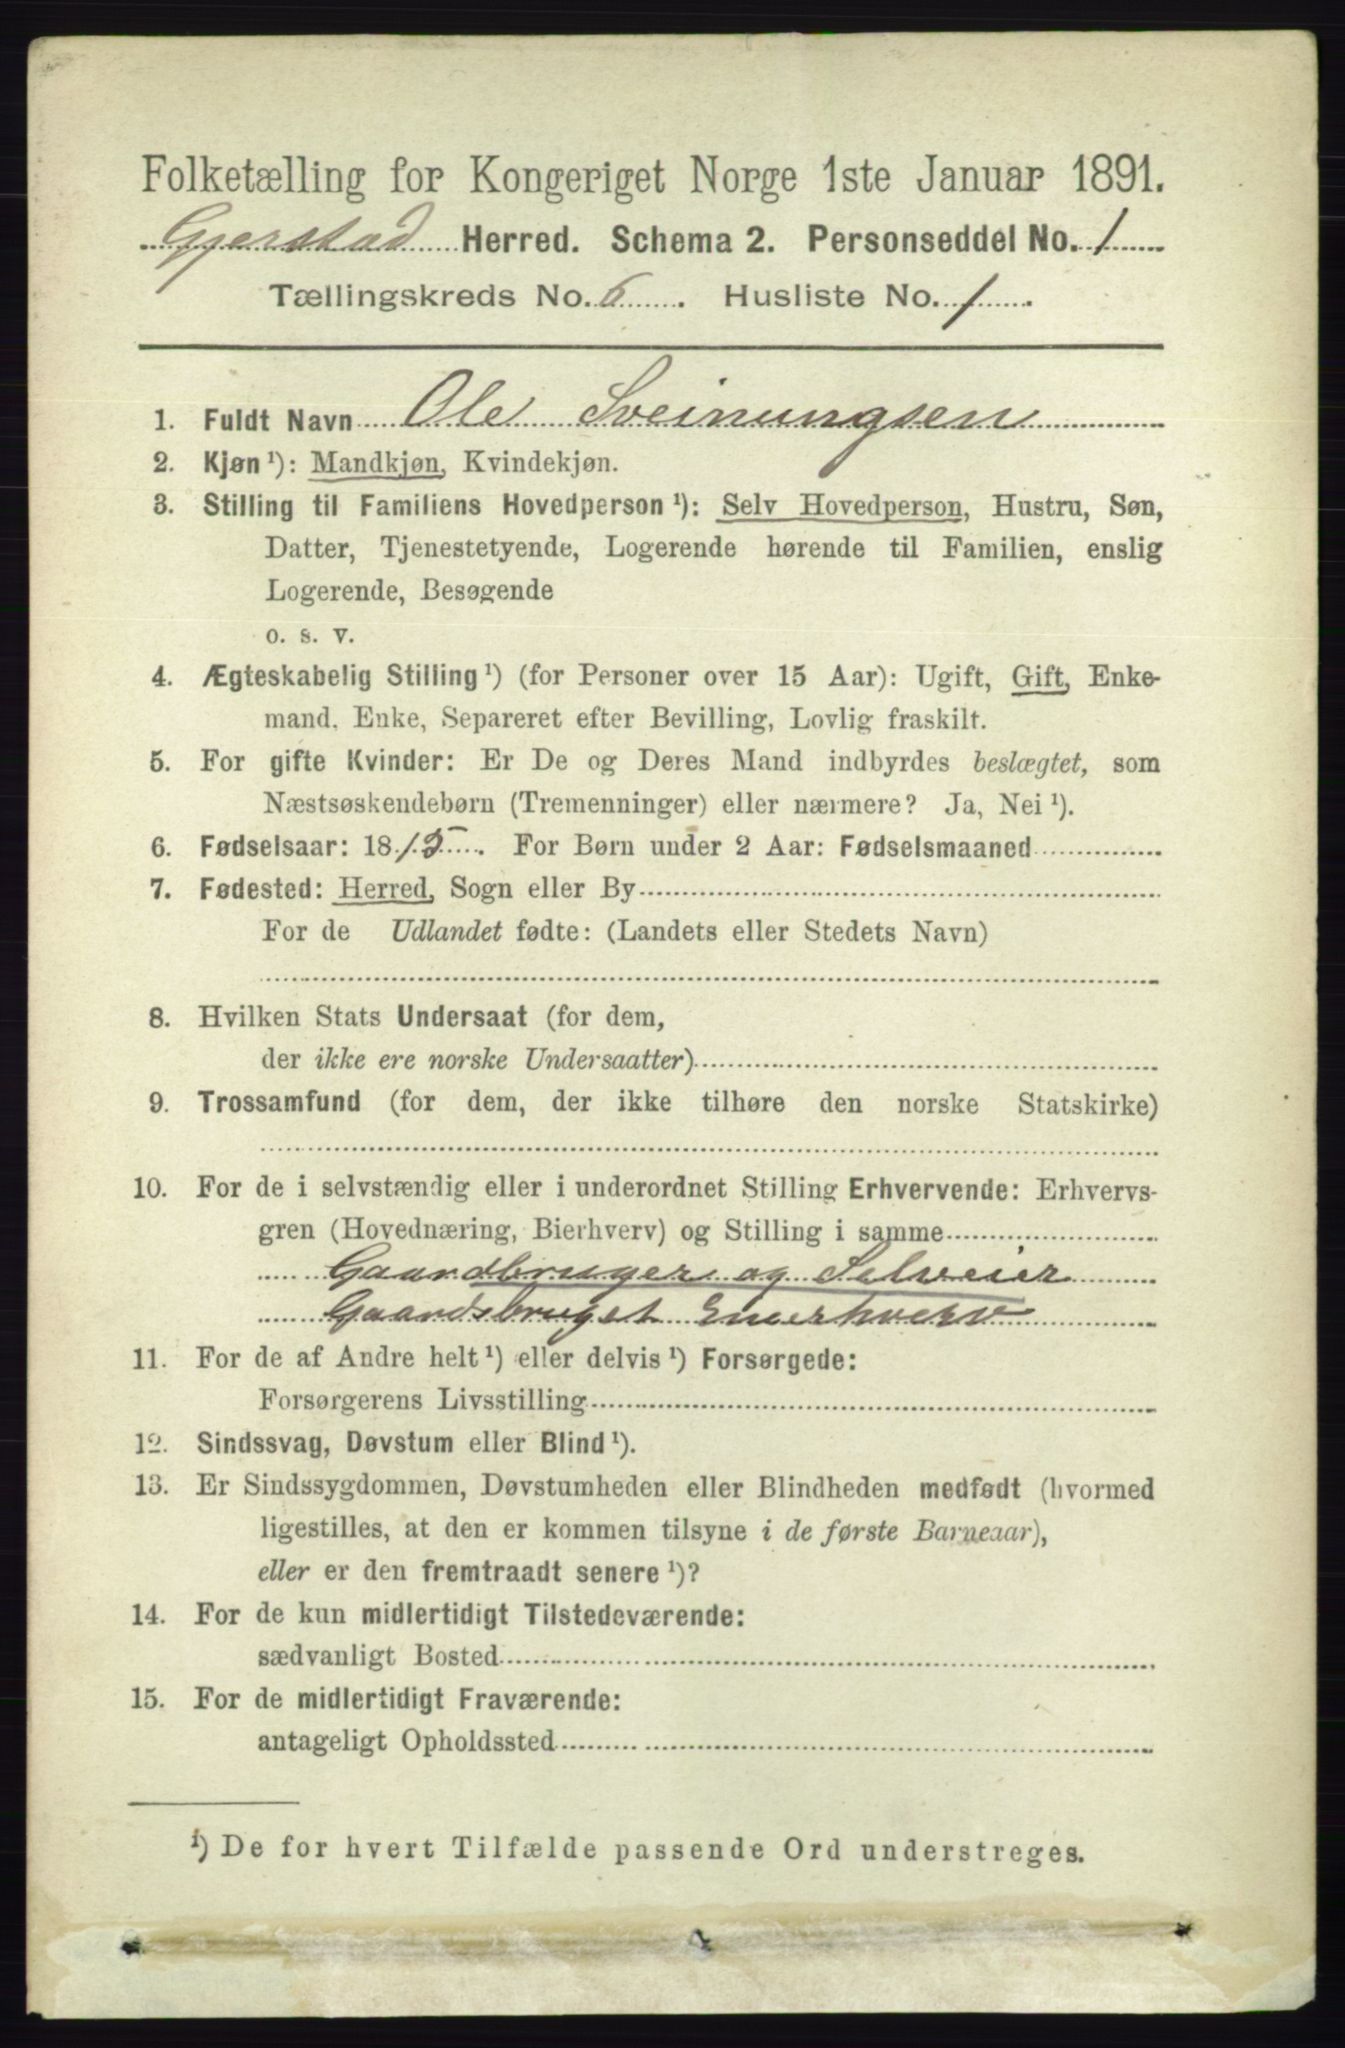 Folketælling for Kongeriget Norge 1ste Januar 1891.
Gjerstad Herred. Schema 2. Personseddel No. 1
Tællingskreds No. 6. Husliste No. 1.
1. Fuldt Navn Ole Sveinungsen
2. Kjøn ¹): Mandkjøn, Kvindekjøn.
3. Stilling til Familiens Hovedperson ¹): Selv Hovedperson, Hustru, Søn,
Datter, Tjenestetyende, Logerende hørende til Familien, enslig
Logerende, Besøgende
o. s. v.
4. Ægteskabelig Stilling ¹) (for Personer over 15 Aar): Ugift, Gift, Enke-
mand, Enke, Separeret efter Bevilling, Lovlig fraskilt.
5. For gifte Kvinder: Er De og Deres Mand indbyrdes beslægtet, som
Næstsøskendebørn (Tremenninger) eller nærmere? Ja, Nei ¹).
6. Fødselsaar: 1815. For Børn under 2 Aar: Fødselsmaaned
7. Fødested: Herred, Sogn eller By
For de Udlandet fødte: (Landets eller Stedets Navn)
8. Hvilken Stats Undersaat (for dem,
der ikke ere norske Undersaatter)
9. Trossamfund (for dem, der ikke tilhøre den norske Statskirke)
10. For de i selvstændig eller i underordnet Stilling Erhvervende: Erhvervs-
gren (Hovednæring, Bierhverv) og Stilling i samme
Gaardbruger og Selveier
Gaardsbruget Enerhverv
11. For de af Andre helt ¹) eller delvis ¹) Forsørgede:
Forsørgerens Livsstilling
12. Sindssvag, Døvstum eller Blind ¹).
13. Er Sindssygdommen, Døvstumheden eller Blindheden medfødt (hvormed
ligestilles, at den er kommen tilsyne i de første Barneaar),
eller er den fremtraadt senere ¹)?
14. For de kun midlertidigt Tilstedeværende:
sædvanligt Bosted
15. For de midlertidigt Fraværende:
antageligt Opholdssted
¹) De for hvert Tilfælde passende Ord understreges.